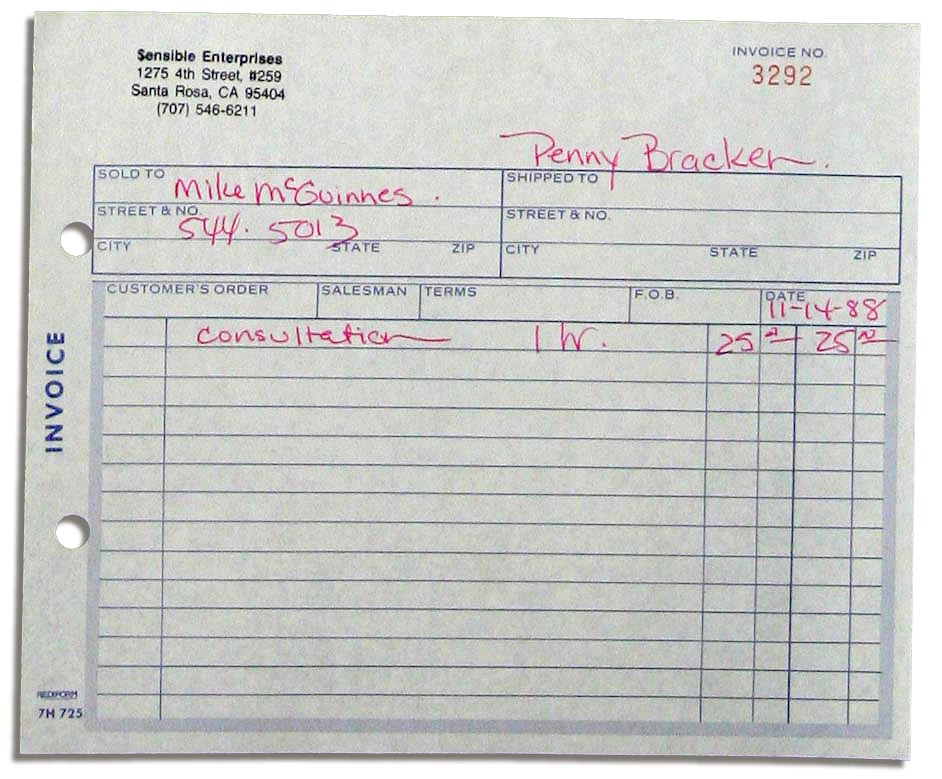 $ensible Enterprises
1275 4th Street, #259
Santa Rosa, CA 95404
(707) 546-6211
INVOICE NO.
3292
Penny Bracken.
SOLD TO Mike McGuinnes.
SHIPPED TO
STREET & NO. 544-5013
STREET & NO.
CITY STATE ZIP
CITY STATE ZIP
CUSTOMER'S ORDER SALESMAN TERMS F.O.B. DATE 11-14-88
consultation 1 hr. 25 25
INVOICE
REDIFORM
7H 725